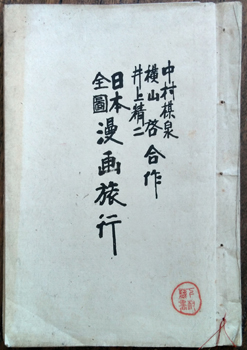 中村楳泉
横山啓
井上精二
合作
日本
全圖
漫画旅行